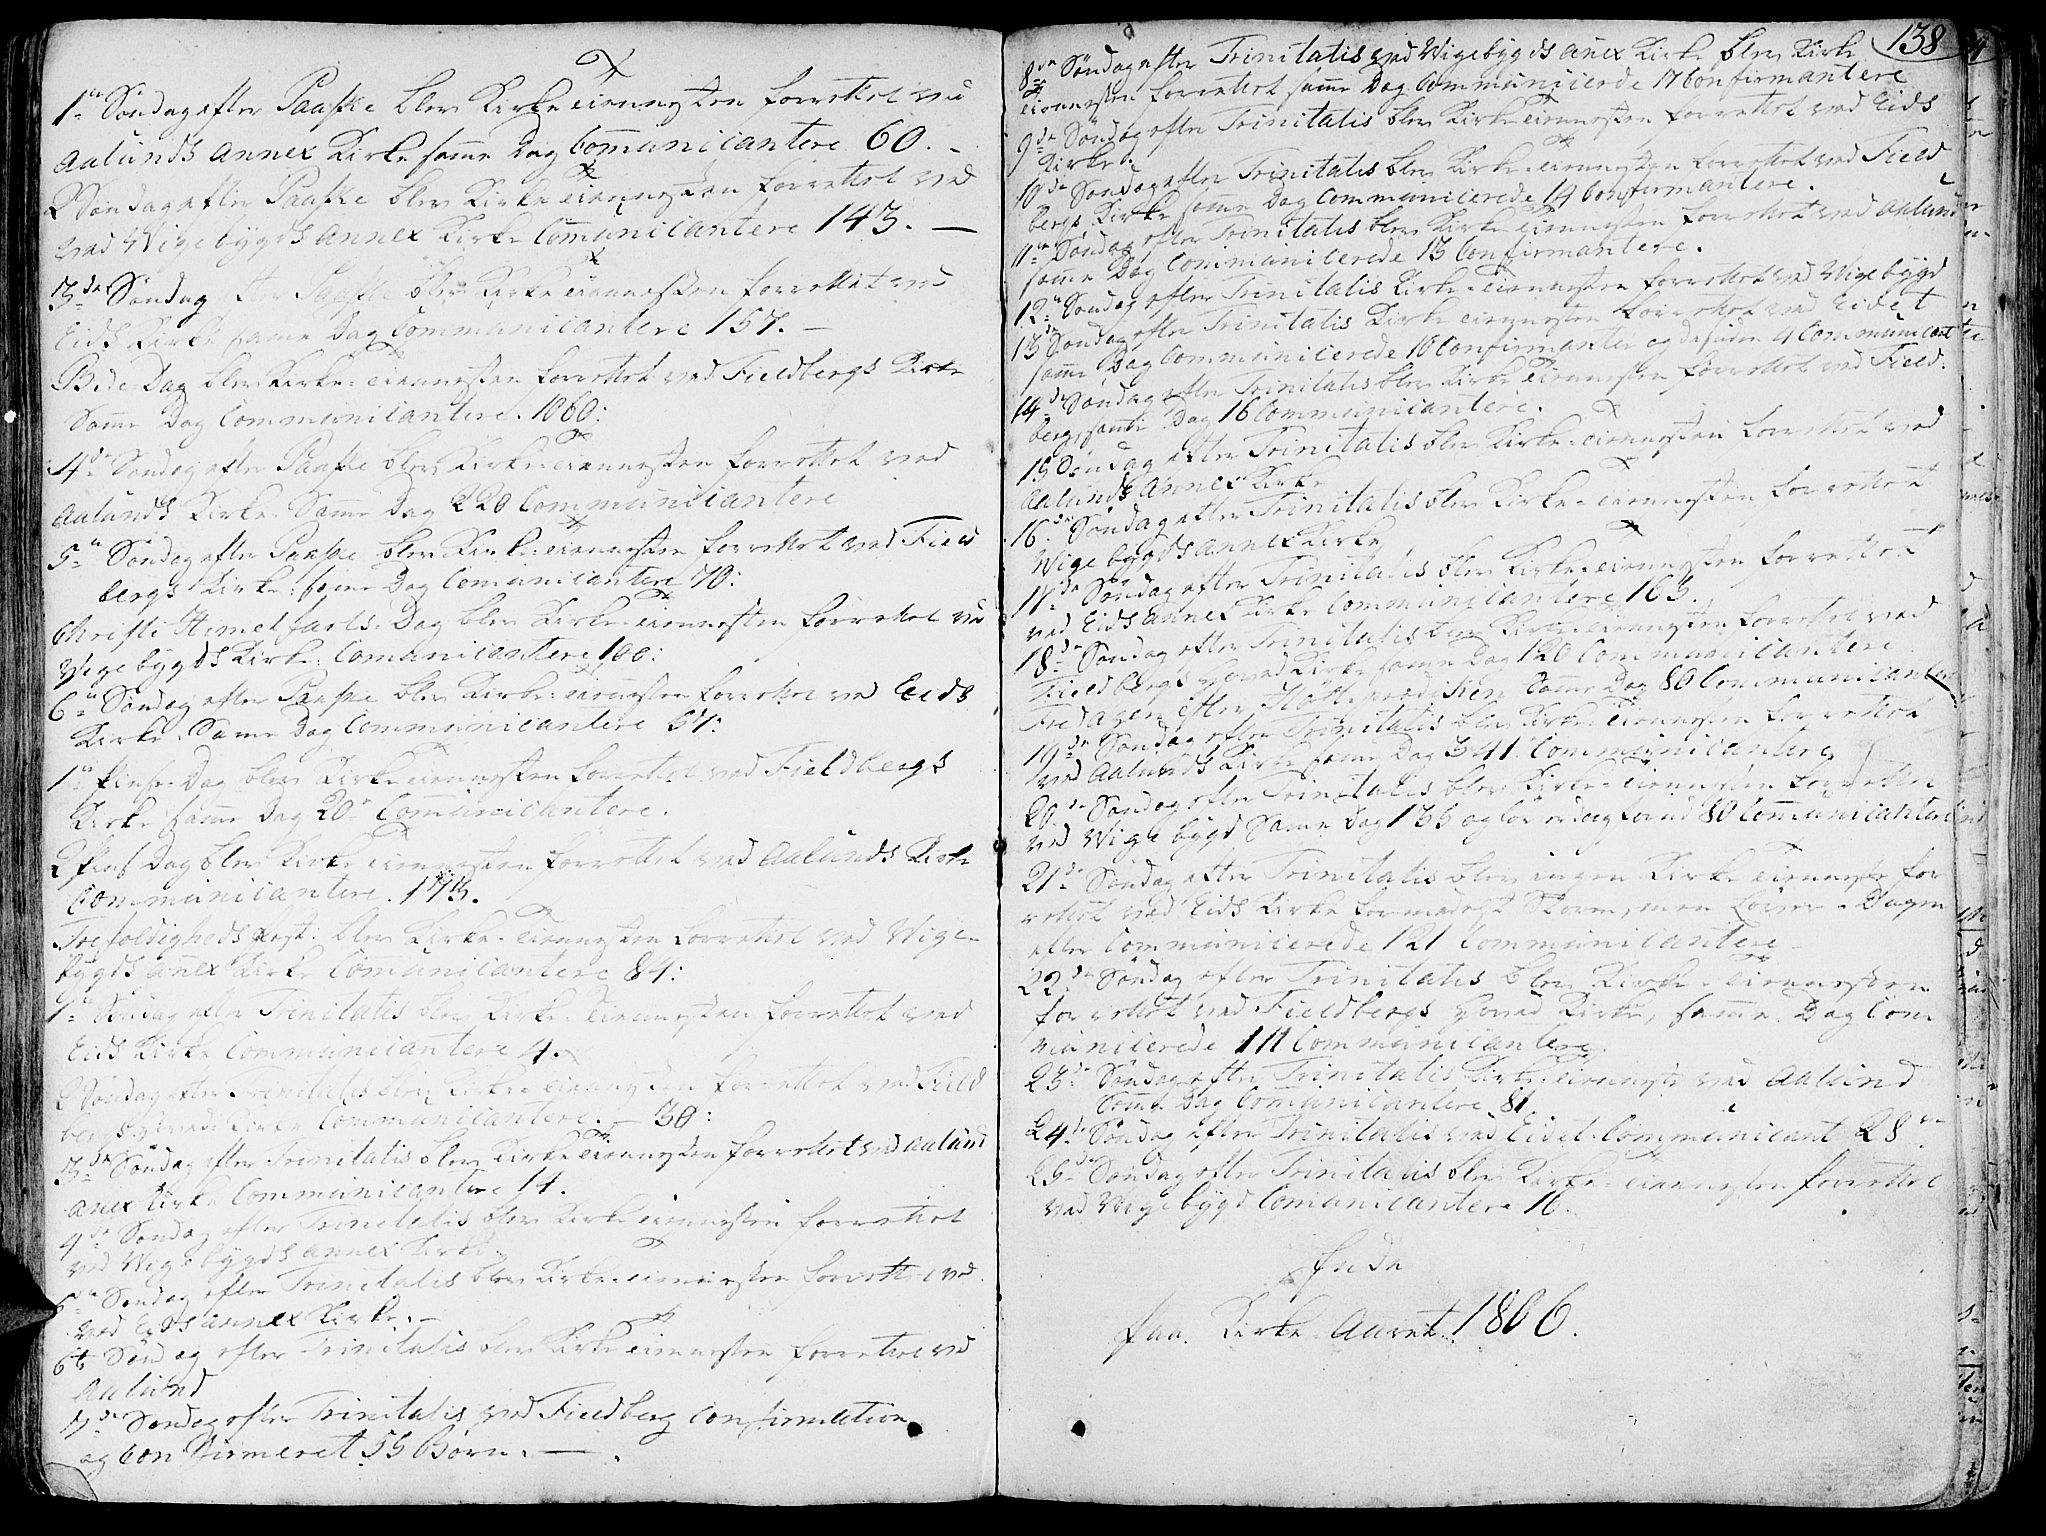 1te Søndag efter Paaske blev Kirke tienesten forrettet ved
Aalunds Annex Kirke samme Dag Communicantere 60. -
2 Søndag efter Paaske blev Kirke tienesten forrettet ved
ved Wigebygds Annex Kirke Communicantere 143. —
3de Søndag efter Paaske blev Kirke tienesten forrettet ved
Eids Kirke samme Dag Communicantere 157. —
Bede-Dag blev Kirke-tienesten forrettet ved Fieldbergs Kirke
Samme Dag Communicantere. 1060:
4de Søndag efter Paaske blev Kirke-tienesten forrettet ved
Aalunds Kirke. Samme Dag 220 Communicantere
5te Søndag efter Paaske blev Kirke-tienesten forrettet ved Field
bergs Kirke: samme Dag Comunicantere 70:
Christi Himelfarts-Dag blev Kirke-tienesten forrettet ved
Wigebygds Kirke: Comunicantere 100:
6te Søndag efter Paaske blev Kirke-tienesten forrettet ved Eids
Kirke. Samme Dag Communicantere 57:
1te Pinse-Dag blev Kirke-tienesten forrettet ved Fieldbergs
Kirke samme Dag 20 Communicantere.
2 Pins Dag blev Kirke tienesten forrettet ved Aalunds Kirke
Communicantere. 173.
Trefoldigheds Fest: blev Kirke-tienesten forrettet ved Wige-
bygds Annex Kirke Comunicantere 84:
1te Søndag efter Trinitatis blev Kirke-tienesten forrettet ved
Eids Kirke Communicantere 4.
2 Søndag efter Trinitatis blev Kirke-tienesten forrettet ved Field
bergs Hoved Kirke Communicantere. — 30:
3de Søndag efter Trinitatis blev Kirke tienesten forrettet ved Aalund
Anex Kirke Communicantere 14.
4de Søndag efter Trinitatis blev Kirke tienesten forrettet
ved Wigebygds Annex Kirke.
5te Søndag efter Trinitatis blev Kirke-tienesten forrettet ved
ved Eids Annex Kirke. —
6te Søndag efter Trinitatis blev Kirke tienesten forrettet ved
Aalund
7de Søndag efter Trinitatis ved Fieldberg Confirmation
og Confirmeret 55 Børn. —
138
8de Søndag efter Trinitatis ved Wigebygds Anex Kirke blev Kirke
tienesten forrettet samme Dag Communicerede 17 Confirmantere
9de Søndag efter Trinitatis blev Kirke-tienesten forrettet ved Eids
Kirke.
10de Søndag efter Trinitatis blev Kirke-tienesten forrettet ved Field
bergs Kirke samme Dag Communicerede 14 Confirmantere.
11te Søndag efter Trinitatis blev Kirke-tienesten forrettet ved Aalund
samme Dag Communicerede 13 Confirmantere.
12te Søndag efter Trinitatis Kirke-tienesten forrettet ved Wigebygd
13de Søndag efter Trinitatis Kirke tienesten forrettet ved Eidet
samme Dag Communicerede 10 Confirmanter og desuden 4 Communicant
14de Søndag efter Trinitatis blev Kirke tienesten forrettet ved Field
berg, samme Dag 16 Communicantere.
15 Søndag efter Trinitatis blev Kirke-tienesten forrettet ved
Aalunds Annex Kirke
16de Søndag efter Trinitatis blev Kirke-tienesten forrettet
Wigebygds Annex Kirke
17de Søndag efter Trinitatis blev Kirke-tienesten forrettet
ved Eids Annex Kirke Communicantere 163.
18de Søndag efter Trinitatis blev Kirke-tienesten forrettet ved
Fieldbergs Hoved Kirke samme Dag 120 Communicantere
Fredagen efter Samme Dag 80 Communicantere
19de Søndag efter Trinitatis blev Kirke-tienesten forrettet
ved Aalunds Kirke samme Dag 341 Communicantere
20de Søndag efter Trinitatis blev Kirke-tienesten forrettet
ved Wigebygd Samme Dag 135 og Løverdag forud 80 Communicantere
21de Søndag efter Trinitatis blev ingen Kirke tieneste for
rettet ved Eids Kirke formedelst Storm, men Løver-Dagen
efter Communicerede 121 Communicantere
22de Søndag efter Trinitatis blev Kirke-tienesten
forrettet ved Fieldbergs Hoved Kirke, samme Dag Com
municerede 111 Communicantere
23de Søndag efter Trinitatis Kirke-tieneste ved Aalund
Samme Dag Comunicantere 81
24de Søndag efter Trinitatis ved Eidet Communicant 28
25de Søndag efter Trinitatis blev Kirke-tienesten forrettet
ved Wigebygd Comunicantere 16.
Ende
paa Kirke-Aaret 1806.